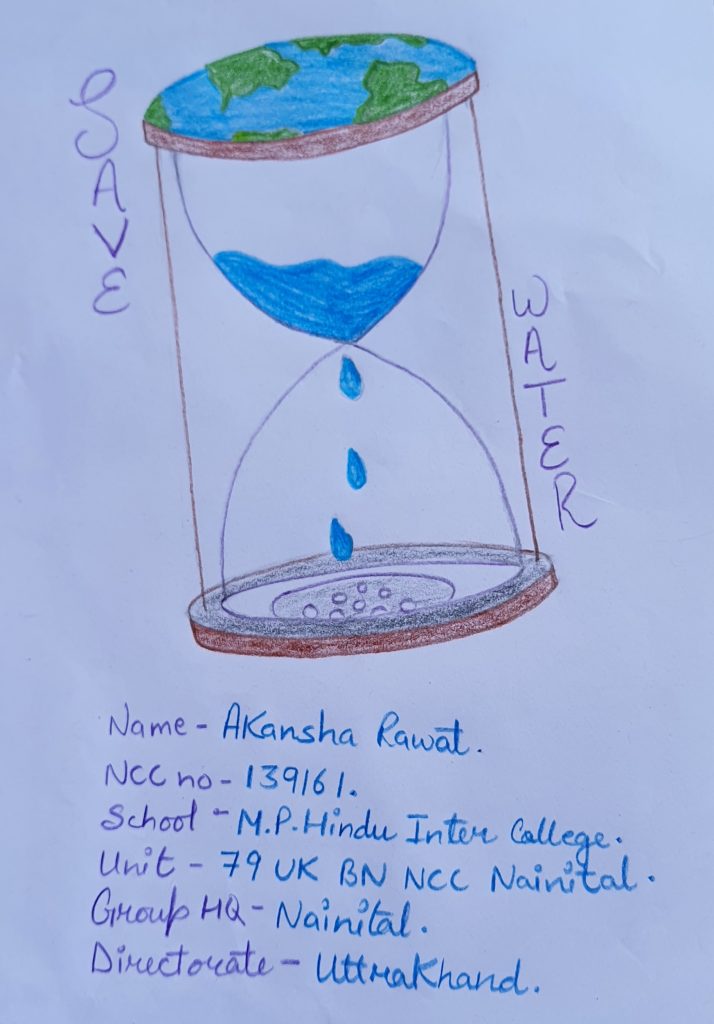 SAVE
WATER
Name - Akansha Rawat.
NCC no - 139161.
School - M.P. Hindu Inter College.
Unit - 79 UK BN NCC Nainital.
Group HQ - Nainital.
Directorate - Uttrakhand.